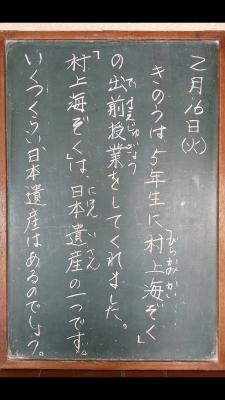 2月16日(火)
きのうは5年生に「村上海ぞく」
の出前授業をしてくれました。
「村上海ぞく」は、日本遺産の一つです。
いくつくらい日本遺産はあるのでしょう。